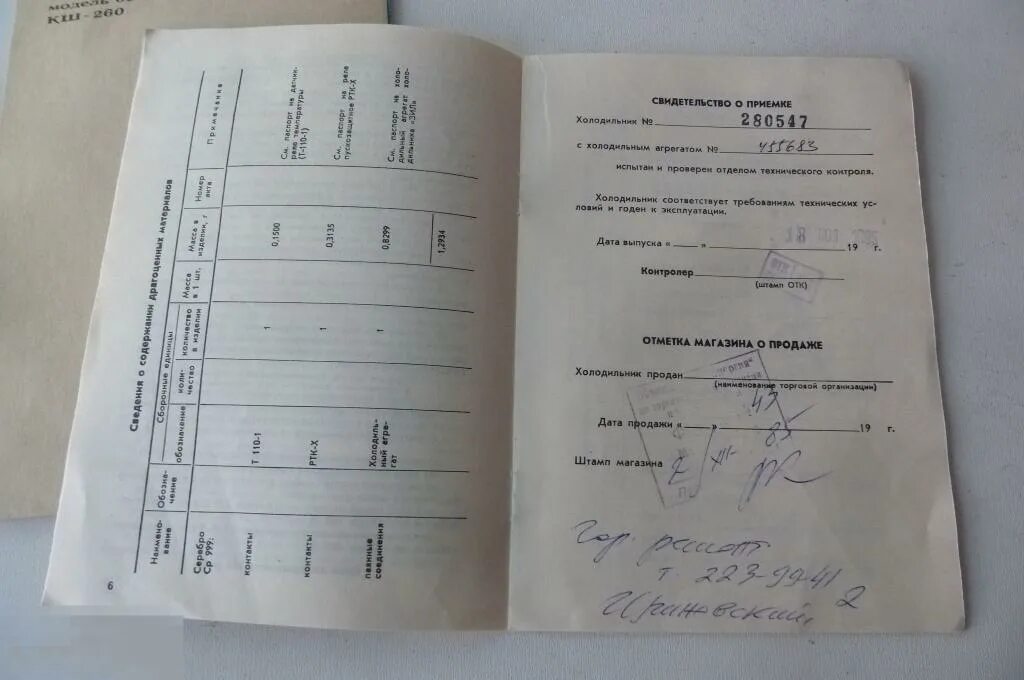 КШ-260
Сведения о содержании драгоценных материалов
Наименование
вание
Обозна-
чение
Сборочные единицы
обозначение
коли-
чество
количество
в изделии
Масса
в 1 шт.
Масса в
изделии, г
Номер
акта
Примечание
Серебро
Ср 999:
контакты
Т 110-1
1
0,1500
См. паспорт на датчик-
реле температуры
(Т-110-1)
контакты
РТК-Х
1
0,3135
См. паспорт на реле
пускозащитное РТК-Х
паянные
соединения
Холодиль-
ный агре-
гат
1
0,8299
См. паспорт на холо-
дильный агрегат холо-
дильника «ЗИЛ»
1,2934
6
СВИДЕТЕЛЬСТВО О ПРИЕМКЕ
Холодильник № 280547
с холодильным агрегатом № 455683
испытан и проверен отделом технического контроля.
Холодильник соответствует требованиям технических ус-
ловий и годен к эксплуатации.
Дата выпуска « » 19 г.
Контролер
(штамп ОТК)
ОТМЕТКА МАГАЗИНА О ПРОДАЖЕ
Холодильник продан
(наименование торговой организации)
43
Дата продажи « » 19 г.
85
Штамп магазина
2 XII
Гар. ремонт
т. 223-99-41